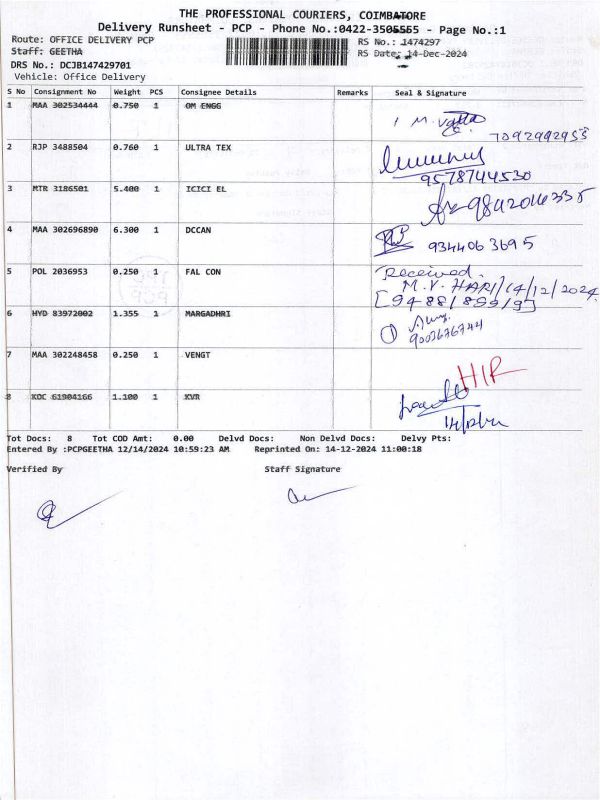 THE PROFESSIONAL COURIERS, COIMBATORE
Delivery Runsheet - PCP - Phone No.:0422-3505555 - Page No.:1
Route: OFFICE DELIVERY PCP RS No.: 1474297
Staff: GEETHA RS Date: 14-Dec-2024
DRS No.: DCJB147429701
Vehicle: Office Delivery
S No Consignment No Weight PCS Consignee Details Remarks Seal & Signature
1 MAA 302534444 0.750 1 OM ENGG
7092992955
2 RJP 3488504 0.760 1 ULTRA TEX
9578744530
3 MTR 3186501 5.400 1 ICICI EL
4 MAA 302696890 6.300 1 DCCAN
9344063695
5 POL 2036953 0.250 1 FAL CON Received.
M.V. HARI/14/12/2024
[9488/899/9]
6 HYD 83972002 1.355 1 MARGADHRI
9003676744
7 MAA 302248458 0.250 1 VENGT
8 KOC 61904166 1.100 1 KVR
Tot Docs: 8 Tot COD Amt: 0.00 Delvd Docs: Non Delvd Docs: Delvy Pts:
Entered By :PCPGEETHA 12/14/2024 10:59:23 AM Reprinted On: 14-12-2024 11:00:18
Verified By Staff Signature